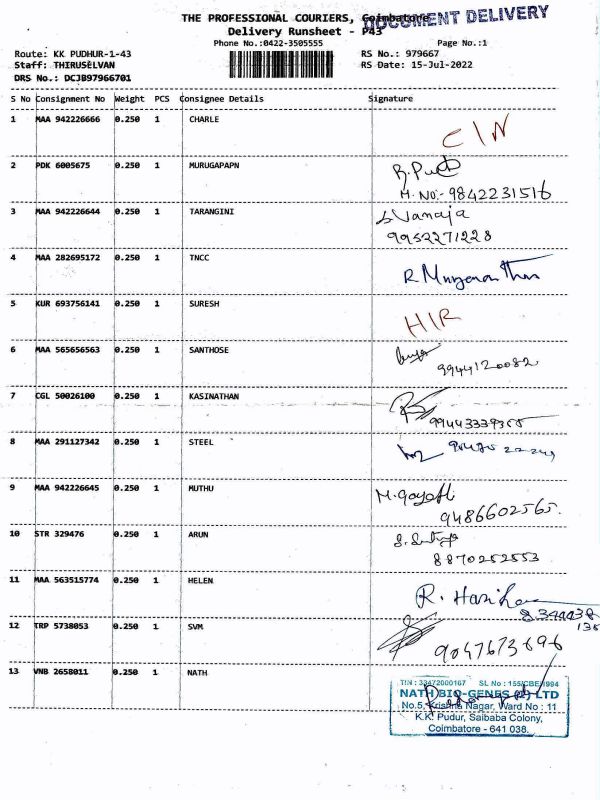 THE PROFESSIONAL COURIERS, Coimbatore
DOCUMENT DELIVERY
Delivery Runsheet - P43
Phone No.:0422-3505555 Page No.:1
Route: KK PUDHUR-1-43 RS No.: 979667
Staff: THIRUSELVAN RS Date: 15-Jul-2022
DRS No.: DCJB97966701
S No Consignment No Weight PCS Consignee Details Signature
1 MAA 942226666 0.250 1 CHARLE C/N
2 PDK 6005675 0.250 1 MURUGAPAPN
M.NO:- 9842231516
3 MAA 942226644 0.250 1 TARANGINI S Vanaja
9952271228
4 MAA 282695172 0.250 1 TNCC
5 KUR 693756141 0.250 1 SURESH H/R
6 MAA 565656563 0.250 1 SANTHOSE
9944120082
7 CGL 50026100 0.250 1 KASINATHAN
8 MAA 291127342 0.250 1 STEEL
9 MAA 942226645 0.250 1 MUTHU
9486602565.
10 STR 329476 0.250 1 ARUN
8870252553
11 MAA 563515774 0.250 1 HELEN
12 TRP 5738053 0.250 1 SVM
9047673696
13 VNB 2658011 0.250 1 NATH
TIN : 33472000167 SL No : 155/CBE/1994
NATH BIO-GENES (P) LTD
No.5, Krishna Nagar, Ward No : 11
K.K. Pudur, Saibaba Colony,
Coimbatore - 641 038.